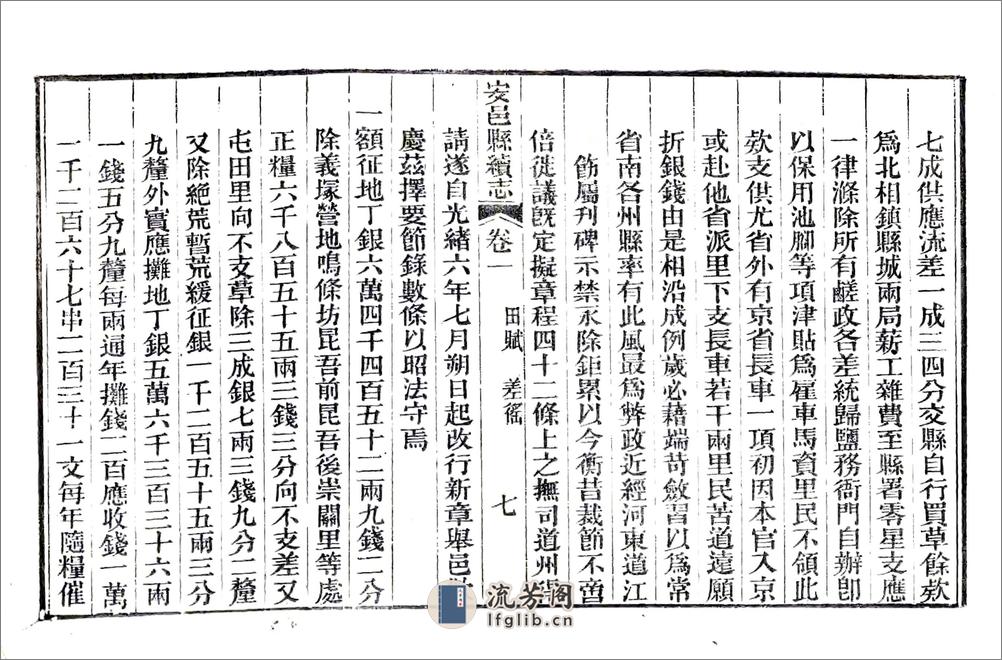 七成供應流差一成三四分交縣自行買草餘欵
爲北相鎮縣城兩局薪工雜費至縣署零星支應
一律滌除所有鹺政各差統歸鹽務衙門自辦卽
以保用池腳等項津貼爲雇車馬資里民不領此
欵支供尤省外有京省長車一項初因本官入京
或赴他省派里下支長車若干兩里民苦道遠願
折銀錢由是相沿成例歲必藉端苛斂習以爲常
省南各州縣率有此風最爲弊政近經河東道江
飭屬刊碑示禁永除鉅累以今衡昔裁節不啻
倍徙議旣定擬章程四十二條上之撫司道州
安邑縣續志
卷一
田賦 差徭
七
請遂自光緒六年七月朔日起改行新章舉邑
慶茲擇要節錄數條以昭法守焉
一額征地丁銀六萬四千四百五十二兩九錢二分
除義塚營地鳴條坊昆吾前昆吾後崇關里等處
正糧六千八百五十五兩三錢三分向不支差又
屯田里向不支草除三成銀七兩三錢九分二釐
又除絕荒暫荒緩征銀一千二百五十五兩三分
九釐外實應攤地丁銀五萬六千三百三十六兩
一錢五分九釐每兩通年攤錢二百應收錢一萬
一千二百六十七串二百三十一文每年隨糧催
流芳阁
lfglib.cn